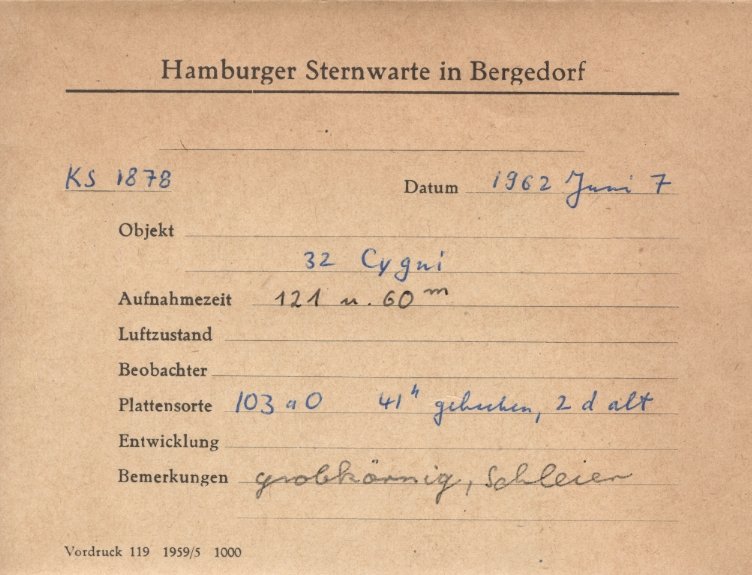 Hamburger Sternwarte in Bergedorf
KS 1878 Datum 1962 Juni 7
Objekt
32 Cygni
Aufnahmezeit 121 u. 60 m
Luftzustand
Beobachter
Plattensorte 103 a O 41h gebacken, 2 d alt
Entwicklung
Bemerkungen grobkörnig, Schleier
Vordruck 119 1959/5 1000